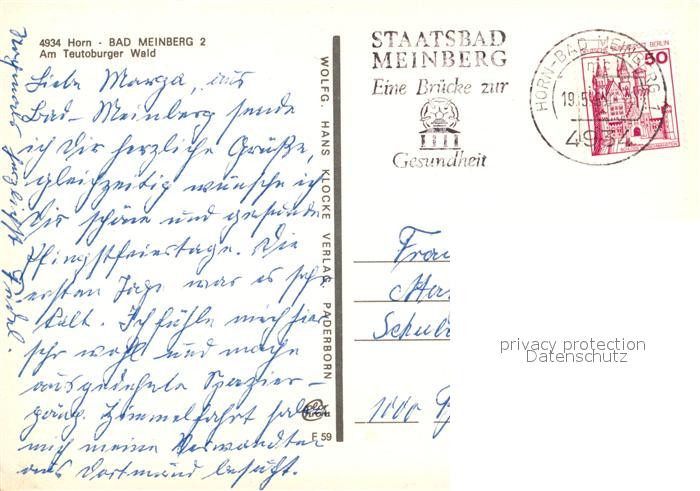 4934 Horn - BAD MEINBERG 2
Am Teutoburger Wald
Liebe Marga, aus
Bad-Meinberg sende
ich Dir herzliche Grüße,
gleichzeitig wünsche ich
Dir schöne und gesunde
Pfingstfeiertage. Die
ersten Tage war es sehr
kalt. Ich fühle mich hier
sehr wohl und mache
ausgedehnte Spazier-
gäng. Himmelfahrt
mich meine Verwandten
aus Dortmund besucht.
WOLFG. HANS KLOCKE VERLAG, PADERBORN
F 59
STAATSBAD
MEINBERG
Eine Brücke zur
Gesundheit
HORN-BAD MEINBERG 1
19.5.
4934
DEUTSCHE BUNDESPOST BERLIN
50
Frau
Schul
1000
privacy protection
Datenschutz